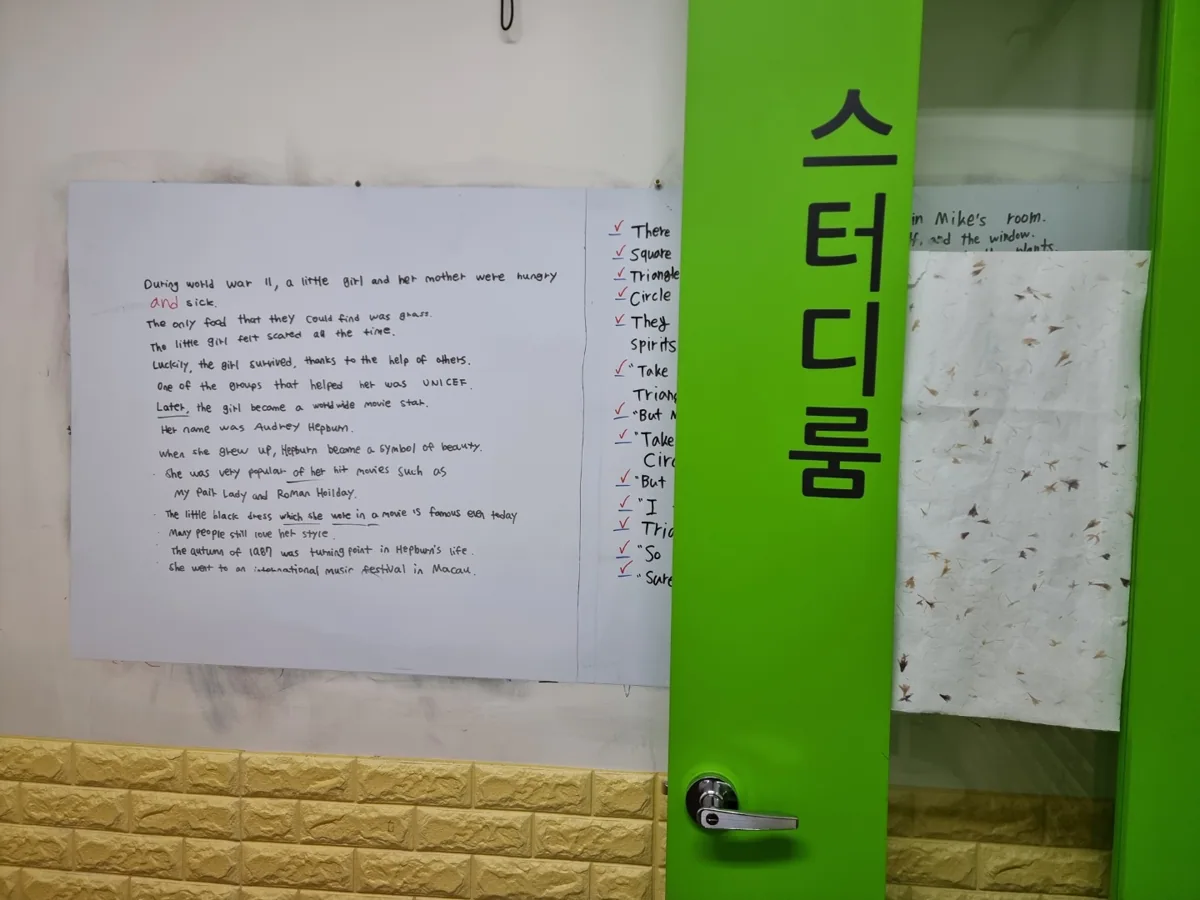 During world war 11, a little girl and her mother were hungry
and sick.
The only food that they could find was grass.
The little girl felt scared all the time.
Luckily, the girl survived, thanks to the help of others.
One of the groups that helped her was UNICEF.
Later, the girl became a worldwide movie star.
Her name was Audrey Hepburn.
When she grew up, Hepburn became a symbol of beauty.
She was very popular of her hit movies such as
My Fair Lady and Roman Holiday.
The little black dress which she wore in a movie is famous even today
Many people still love her style.
The autumn of 1987 was turning point in Hepburn's life.
She went to an international music festival in Macau.
There
Square
Triangle
Circle
They
spirits
"Take
Triang
"But
"Take
Circ
"But
"I
Tria
"So
"Sure
스터디룸
in Mike's room.
f, and the window.
plants.